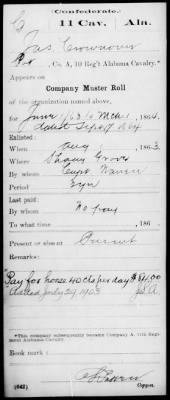 Confederate.
C 11 Cav. Ala.
Jas Crownover
Pvt, Co. A, 10 Reg't Alabama Cavalry.*
Appears on
Company Muster Roll
of the organization named above,
for June 1/63 to 186
dated Sept 19, 1864
Enlisted:
When Aug , 1863
Where Shady Grove
By whom Capt Warren
Period 3 yrs
Last paid:
By whom No pay
To what time , 186
Present or absent Present
Remarks:
Pay for horse 40 cts per day
July 29, 1903
*This company subsequently became Company A, 11th Regiment Alabama Cavalry.
Book mark:
(642) Copyist.